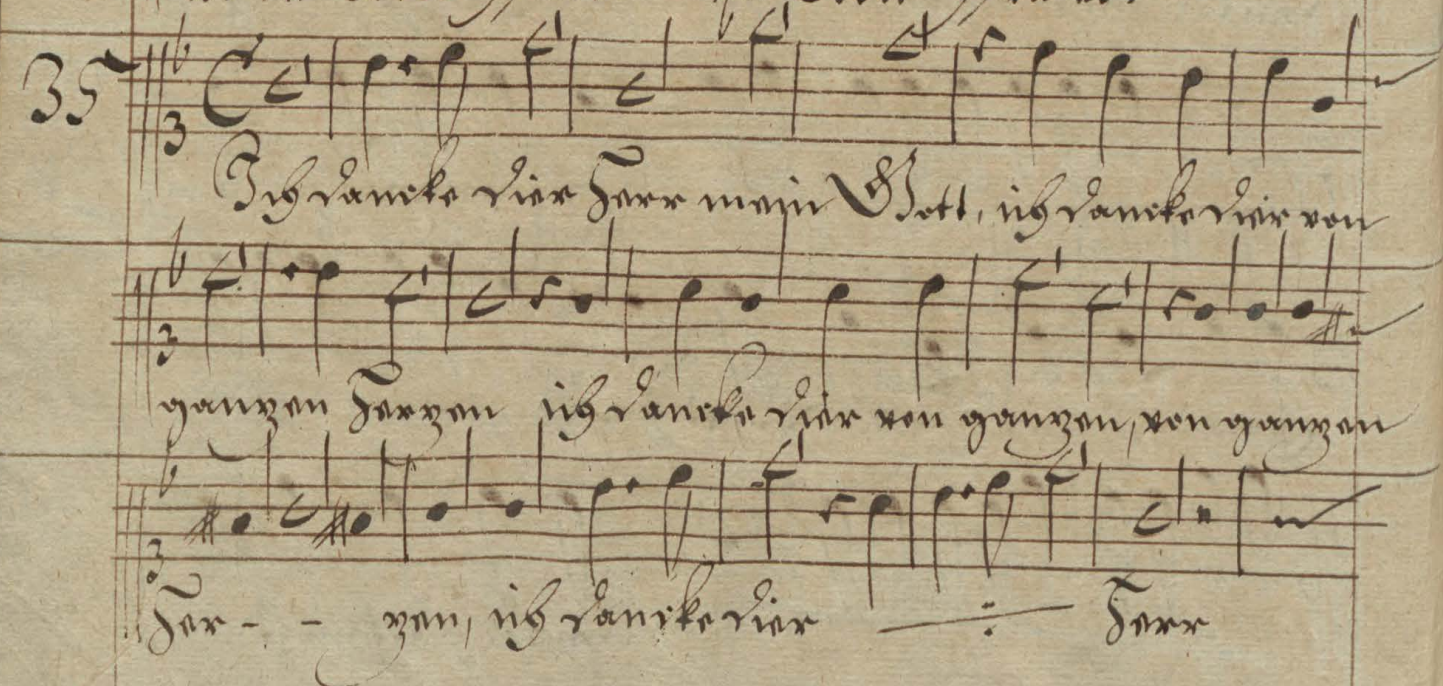 35
Ich dancke dier Herr mein Gott, ich dancke dier von
ganzen Herzen ich dancke dier von ganzen, von ganzen
Her - - zen, ich dancke dier Herr